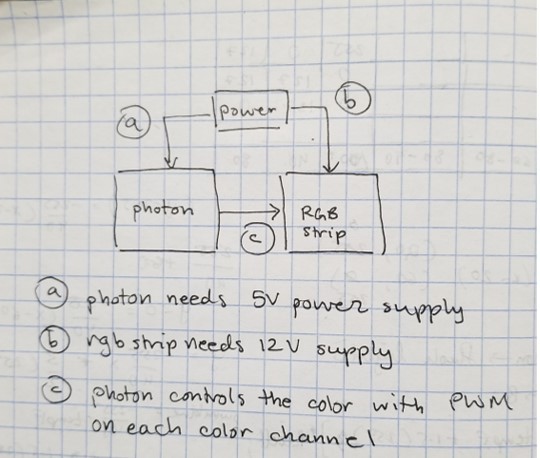 power
a
b
photon
RGB
strip
c
a photon needs 5V power supply
b rgb strip needs 12V supply
c photon controls the color with PWM
on each color channel